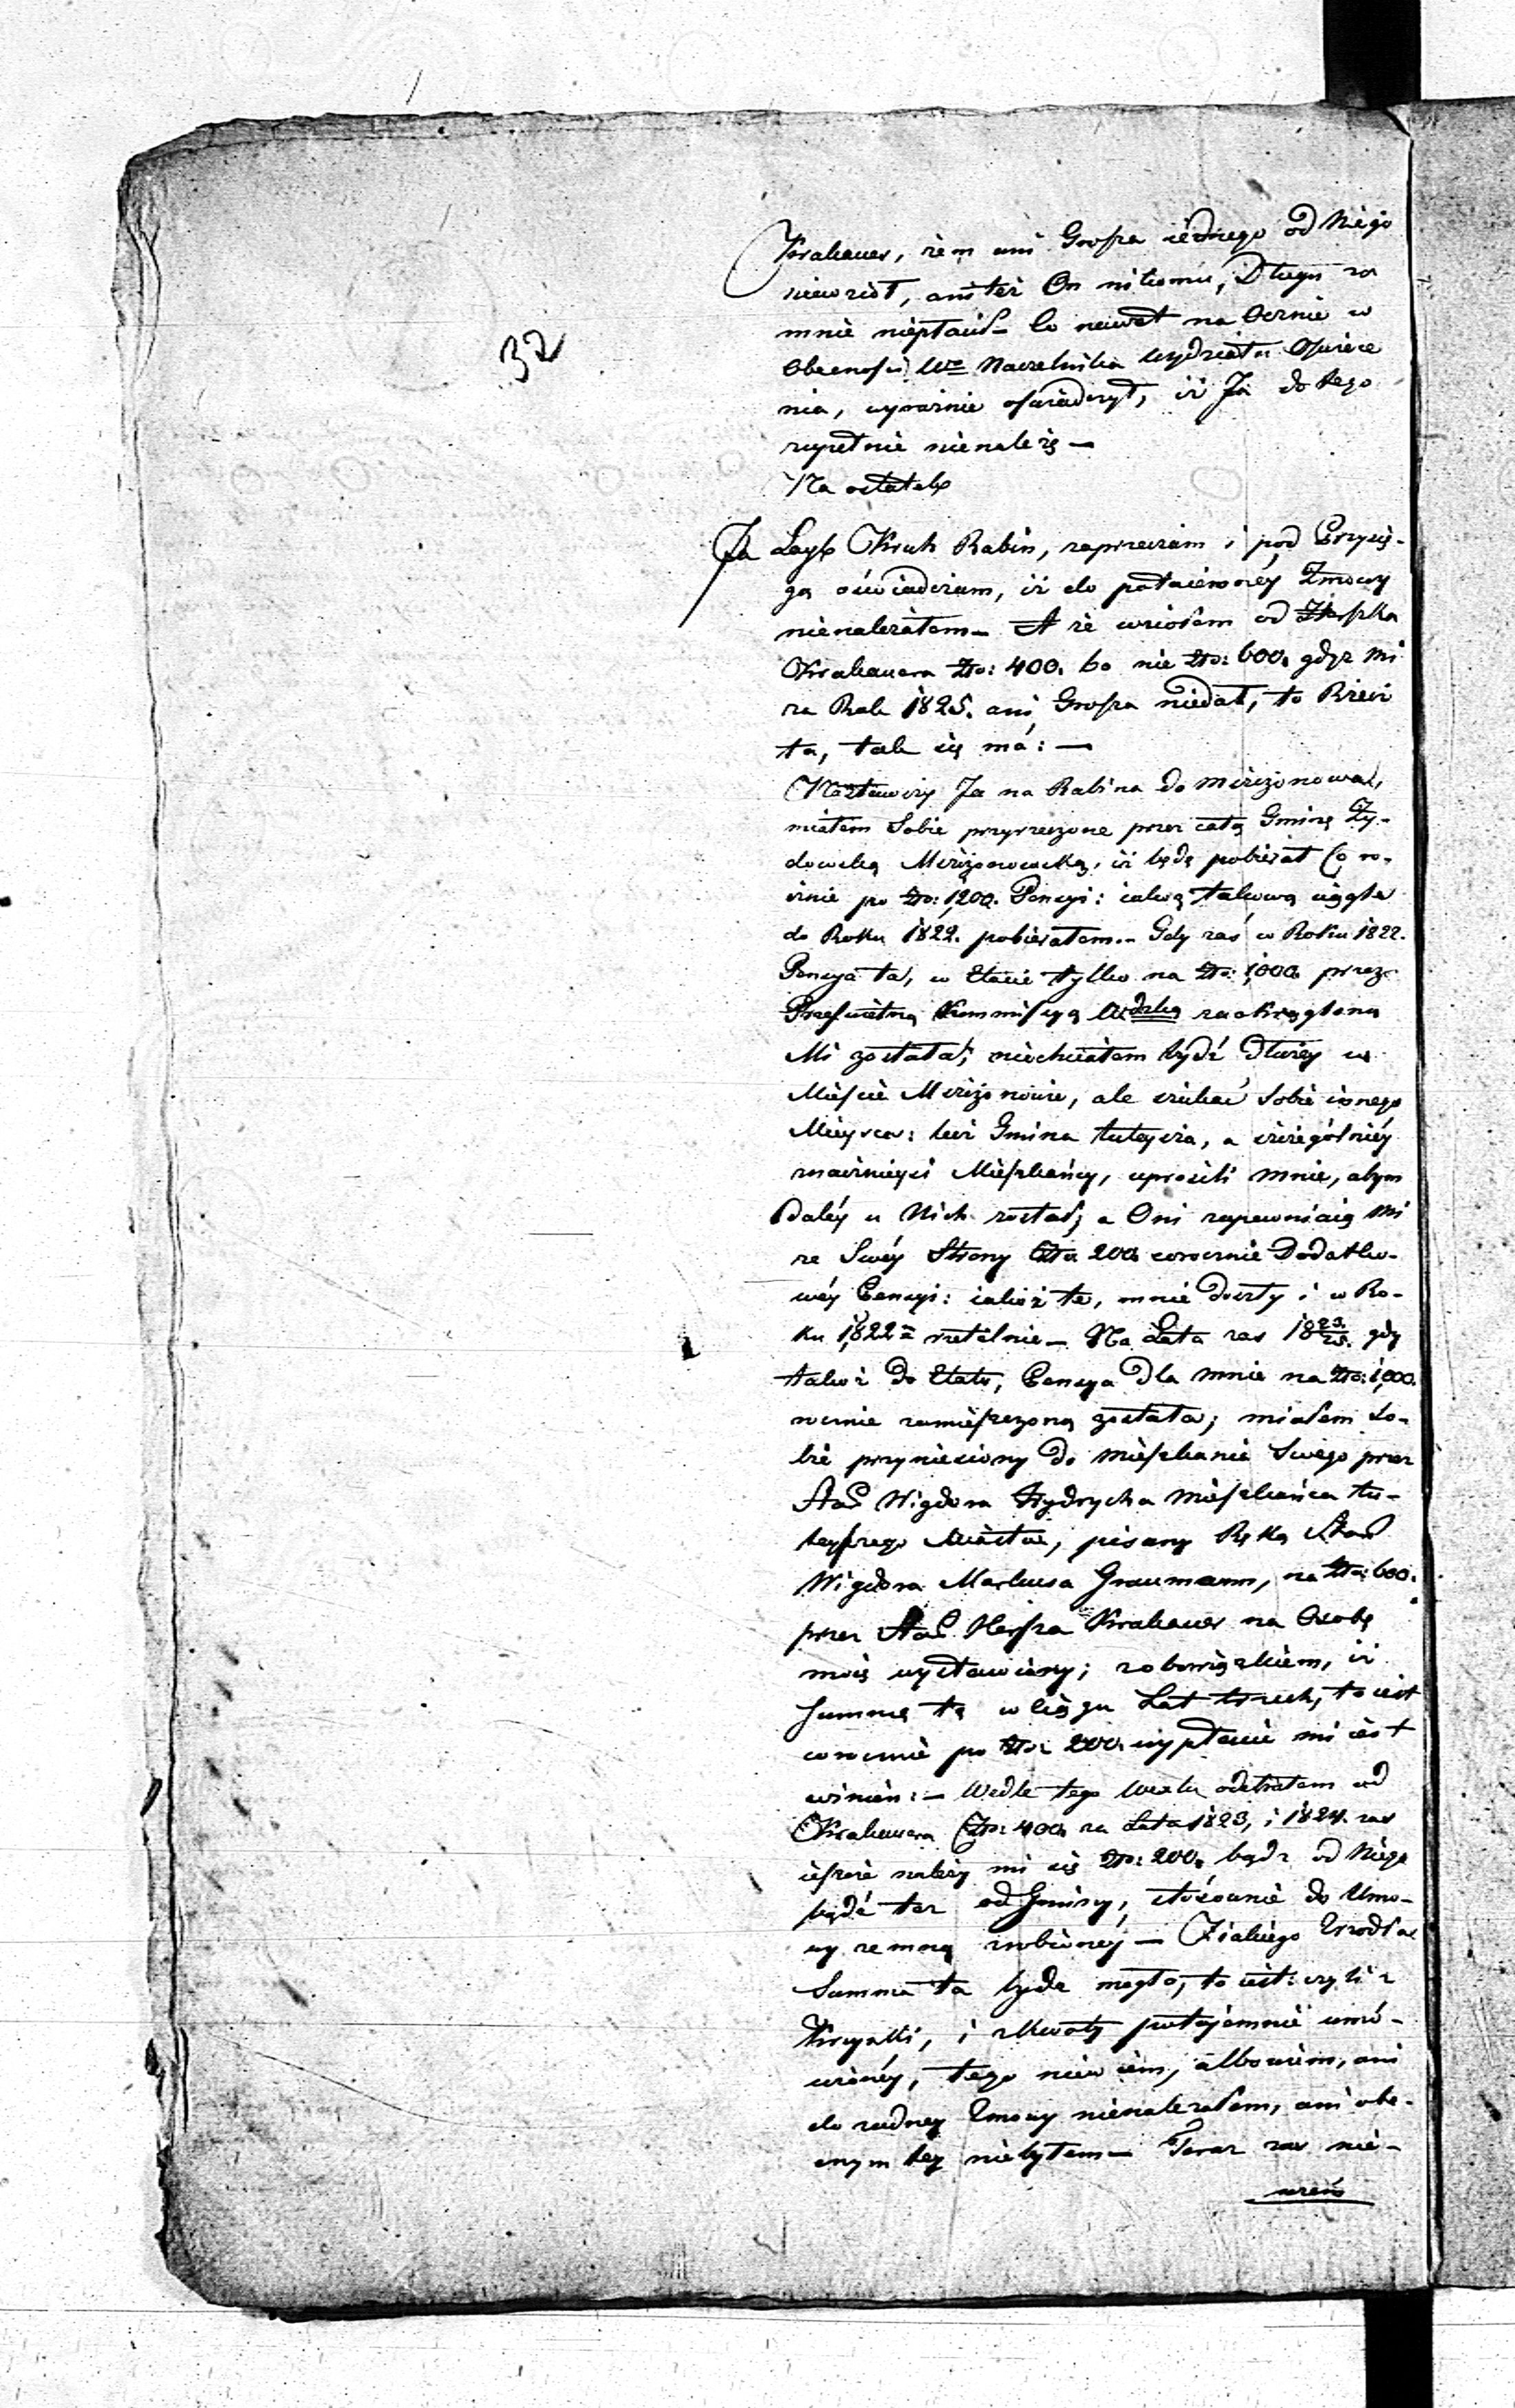 32
Krakauer, żem ani Grosza iednego od Niego
niewziół, ani też On nikomu, Długu za
mnie niepłacił – Co nawet na Ocznie w
Obecności Wo Naczelnika Wydziału Oświece
nia, wyraźnie oświadczył, iż Ja do tego
zupełnie nienależę –
Na ostatek
Ja Leyb Kruk Rabin, zaprzeczam i pod Przysię-
gą oświadczam, iż do potaiemnéy Zmowy
nienależałem – A że wziołem od Herszka
Krakauera Złto: 400. bo nie Złto: 600. gdyż mi
za Rok 1825. ani Grosza niedał, to Rzecz
ta, tak się má: –
Nastawszy Ja na Rabina do Mierzonowa,
miałem Sobie przyrzeczone przez całą Gminę Ży-
dowską Mierzonowską, iż będę pobierał Co ro-
cznie po Złto: 1,200. Pensyi: iakoż takową ciągle
do Roku 1822. pobierałem. – Gdy zaś w Roku 1822.
Pensya ta, w Etacie tylko na Złto: 1,000 przez
Prześwietną Kommisyą Wdzką zaokrągloną
Mi została; niechciałem bydź dłużéy w
Mieście Mierzonowie, ale szukać Sobie innego
Mieysca: lecz Gmina tuteysza, a szczególniéy
znacznieysi Mieszkańcy, uprosili mnie, abym
daléy u Nich został; a Oni zapewniaią mi
ze Swéy Strony Złto 200. corocznie Dodatko-
wéy Pensyi: iakoż te, mnie doszły i w Ro-
ku 1,822 = rzetelnie – Na Lata zas 1823/25. gdy
takoż do Etatu, Pensya dla mnie na Złto: 1,000.
rocznie zamieszczoną została; miałem So-
bie przyniesiony do mieszkania Swego przez
Stao Wigdora Frydrycha Mieszkańca tu-
teyszego Miasta, pisany Ręką Stao
Wigdora Markusa Graumann, na Złto: 600.
przez Stao Herszka Krakauer na Osobę
moię wystawiony; z obowiązkiem, iż
Summę tę w Ciągu Lat trzech, to iest
corocznie po Złto: 200. wypłacić mi iest
winien: – Wedle tego Wexlu odebrałem od
Krakauera Złto: 400. za Lata 1823, i 1824. zas
ieszcze należy mi się Złto: 200. bądz od Niego
bądź tez od Gminy, stósownie do Umo-
wy zemną zrobionéy – Z iakiego Zrodła
Summa ta bydz mogła, to iest: czyli z
Krupki, i z Kwoty potajemnié umó-
wionéy, tego niewiem, albowiem, ani
do zadney Zmowy nienalezałem, ani obe-
cnym tey niebyłem – Teraz zas nie-